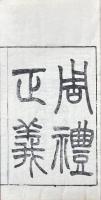 周禮
正義